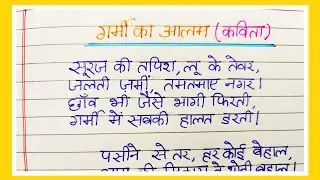 गर्मी का आलम (कविता)
सूरज की तपिश, लू के तेवर,
जलती ज़मीं, तमतमाए नगर।
छाँव भी जैसे भागी फिरती,
गर्मी में सबकी हालत डरती।
पसीने से तर, हर कोई बेहाल,